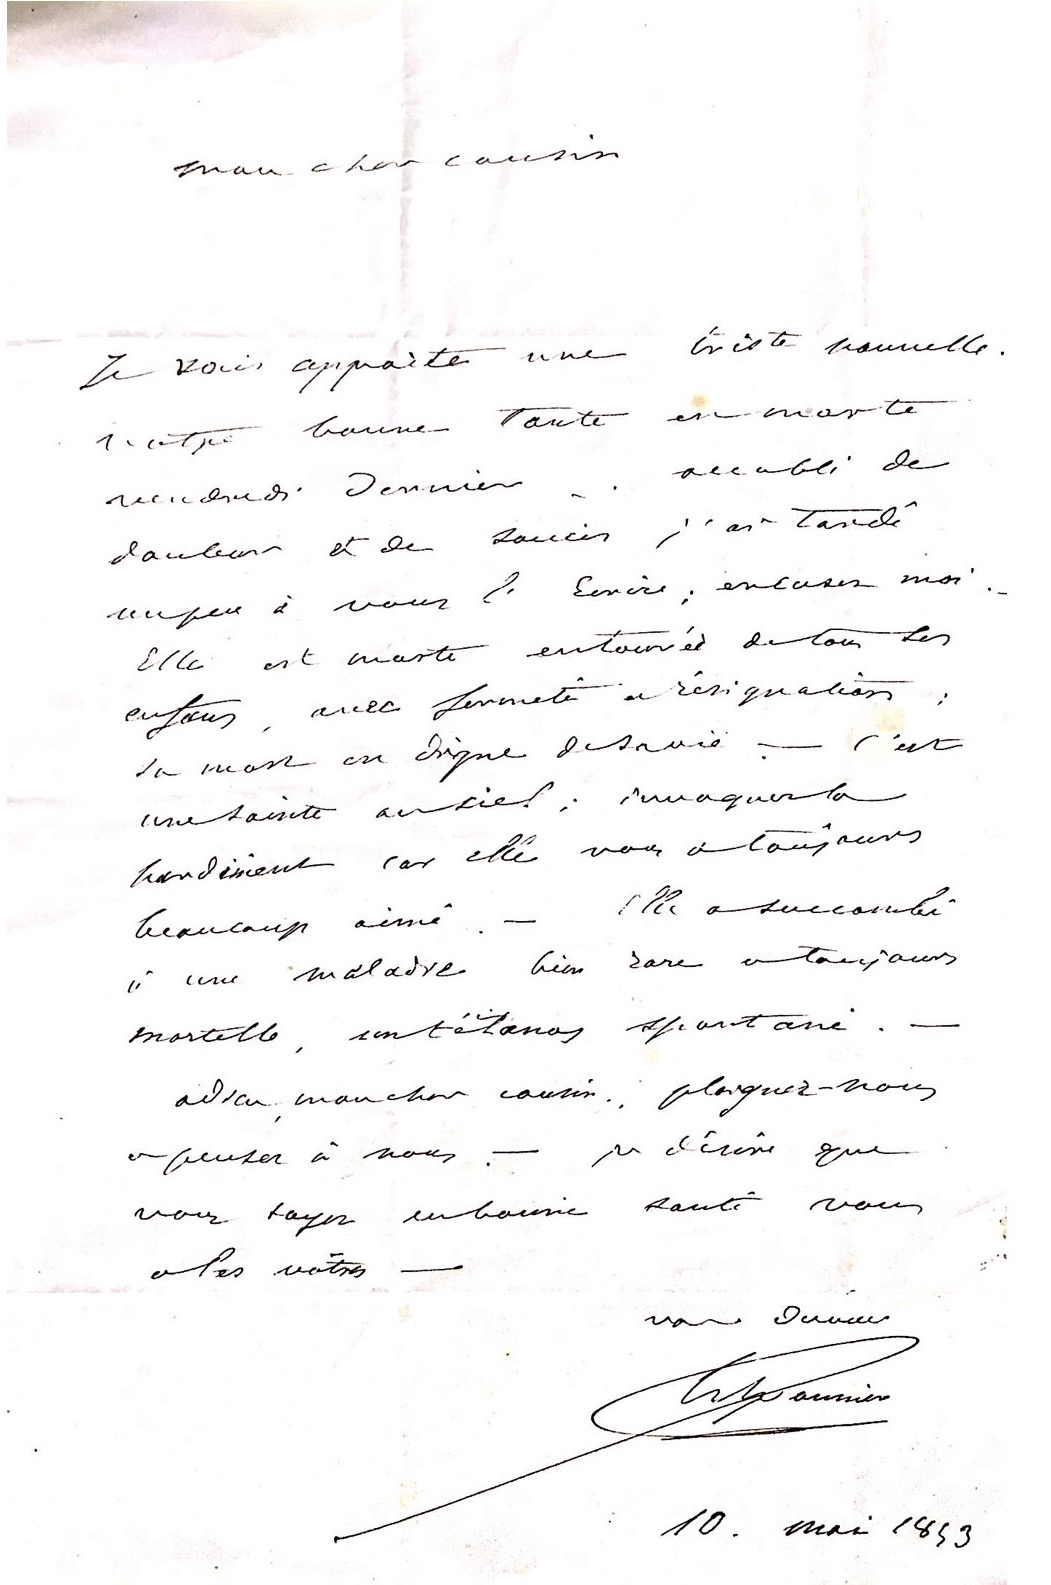 mon cher cousin
Je vais appraite une triste nouvelle.
notre bonne Tante en morte
vendredi Dernier - . accablé de
douleur et de soucis j'ai Tardé
un peu à vous l' Ecrire ; excuser moi . -
Elle est morte entourée de tous ses
enfans, avec fermeté et résignation ;
sa mort en digne de sa vie — C'est
une sainte au ciel ; invoquer la
hardiment car elle vous a toujours
beaucoup aimé . — Elle a succombé
à une maladie bien rare et toujours
mortelle, un tétanos spontané . —
adieu, mon cher cousin ; plaignez-nous
et penser à nous . — je désire que
vous soyez en bonne santé vous
et les vôtres —
votre Dévoué
Paunier
10. mai 1853